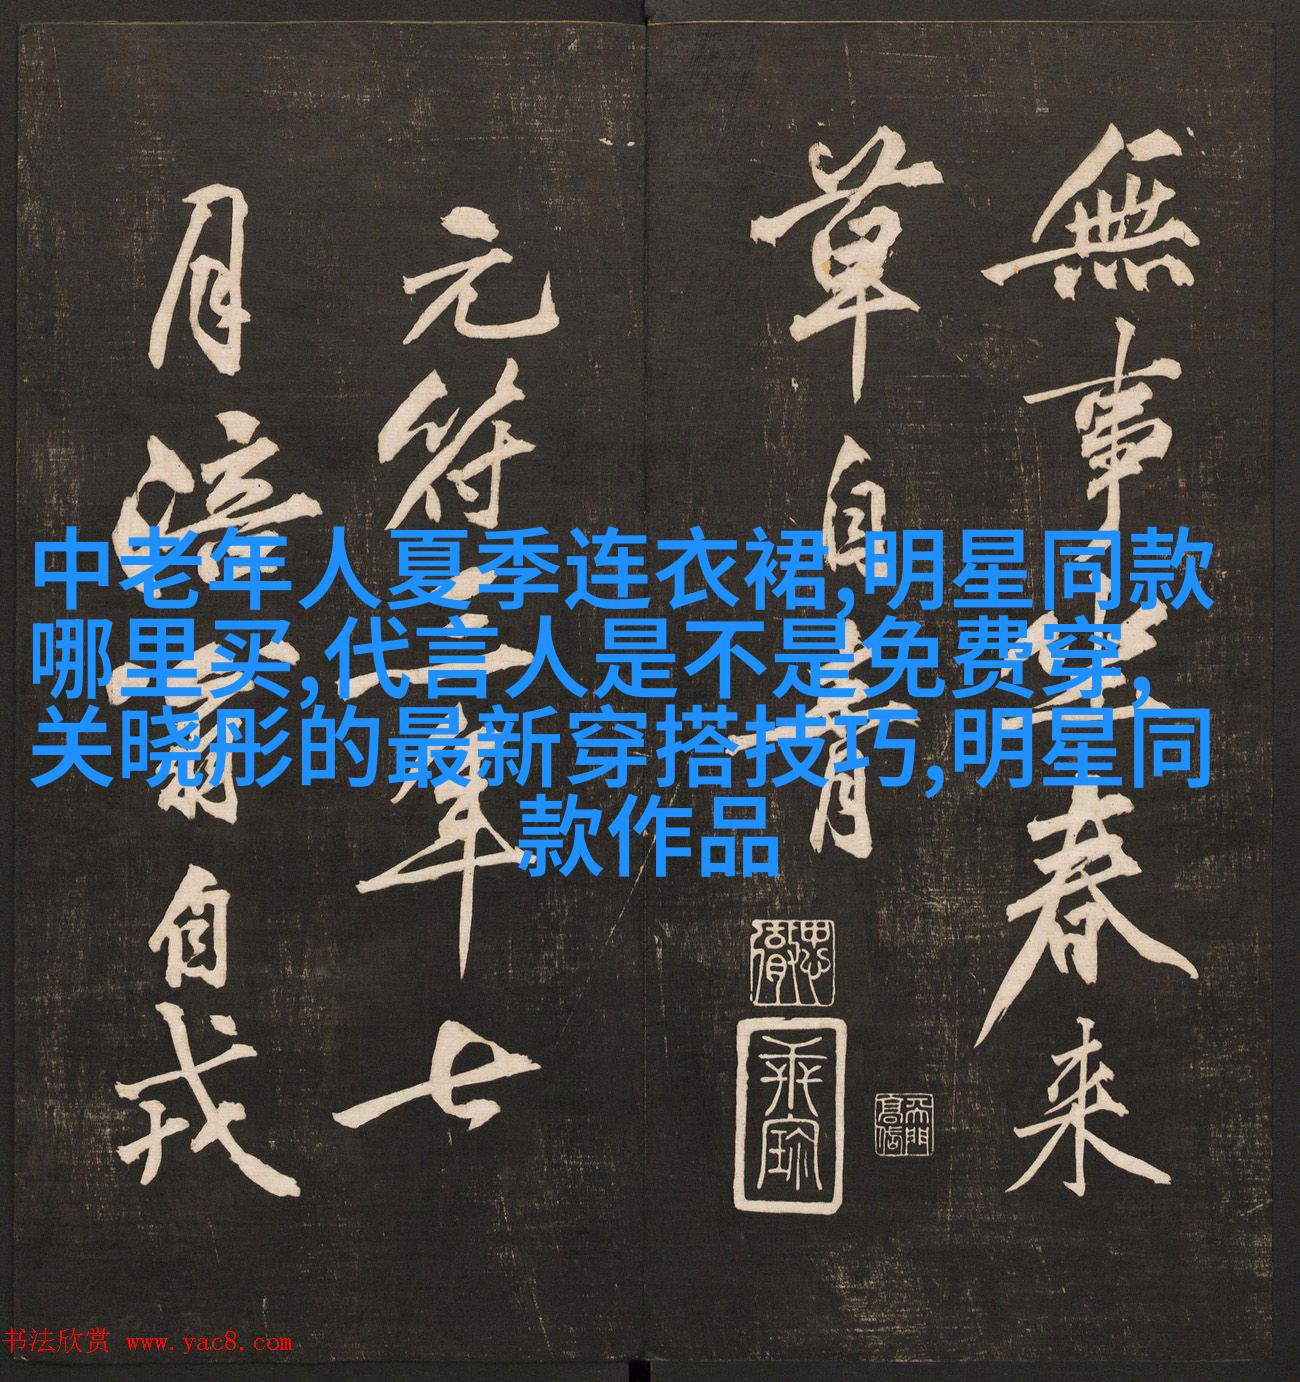 無事坐春来
草自青
元符三年七
月涪翁自戎
中老年人夏季连衣裙,明星同款
哪里买,代言人是不是免费穿,
关晓彤的最新穿搭技巧,明星同
款作品
书法欣赏 www.yac8.com